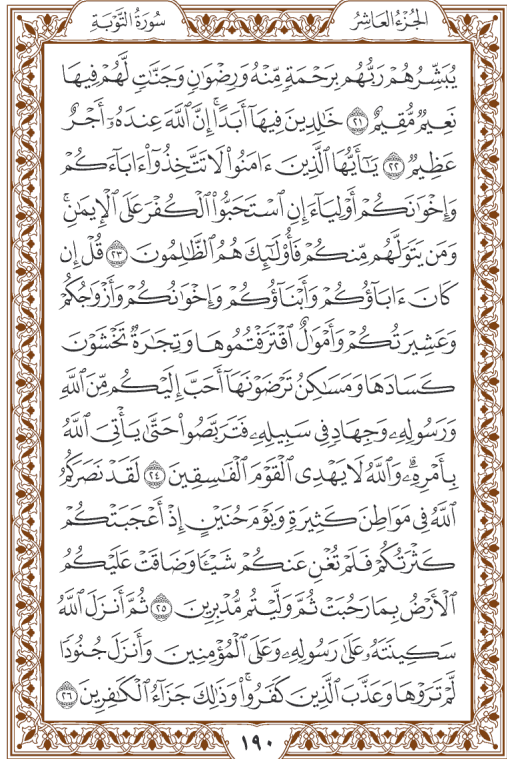 الجزء العاشر
سورة التوبة
يُبَشِّرُهُمْ رَبُّهُم بِرَحْمَةٍ مِّنْهُ وَرِضْوَٰنٍ وَجَنَّٰتٍ لَّهُمْ فِيهَا
نَعِيمٌ مُّقِيمٌ ۝٢١ خَٰلِدِينَ فِيهَآ أَبَدًاۚ إِنَّ ٱللَّهَ عِندَهُۥٓ أَجْرٌ
عَظِيمٌ ۝٢٢ يَٰٓأَيُّهَا ٱلَّذِينَ ءَامَنُوا۟ لَا تَتَّخِذُوٓا۟ ءَابَآءَكُمْ
وَإِخْوَٰنَكُمْ أَوْلِيَآءَ إِنِ ٱسْتَحَبُّوا۟ ٱلْكُفْرَ عَلَى ٱلْإِيمَٰنِۚ
وَمَن يَتَوَلَّهُم مِّنكُمْ فَأُو۟لَٰٓئِكَ هُمُ ٱلظَّٰلِمُونَ ۝٢٣ قُلْ إِن
كَانَ ءَابَآؤُكُمْ وَأَبْنَآؤُكُمْ وَإِخْوَٰنُكُمْ وَأَزْوَٰجُكُمْ
وَعَشِيرَتُكُمْ وَأَمْوَٰلٌ ٱقْتَرَفْتُمُوهَا وَتِجَٰرَةٌ تَخْشَوْنَ
كَسَادَهَا وَمَسَٰكِنُ تَرْضَوْنَهَآ أَحَبَّ إِلَيْكُم مِّنَ ٱللَّهِ
وَرَسُولِهِۦ وَجِهَادٍ فِى سَبِيلِهِۦ فَتَرَبَّصُوا۟ حَتَّىٰ يَأْتِىَ ٱللَّهُ
بِأَمْرِهِۦۗ وَٱللَّهُ لَا يَهْدِى ٱلْقَوْمَ ٱلْفَٰسِقِينَ ۝٢٤ لَقَدْ نَصَرَكُمُ
ٱللَّهُ فِى مَوَاطِنَ كَثِيرَةٍۙ وَيَوْمَ حُنَيْنٍۙ إِذْ أَعْجَبَتْكُمْ
كَثْرَتُكُمْ فَلَمْ تُغْنِ عَنكُمْ شَيْـًٔا وَضَاقَتْ عَلَيْكُمُ
ٱلْأَرْضُ بِمَا رَحُبَتْ ثُمَّ وَلَّيْتُم مُّدْبِرِينَ ۝٢٥ ثُمَّ أَنزَلَ ٱللَّهُ
سَكِينَتَهُۥ عَلَىٰ رَسُولِهِۦ وَعَلَى ٱلْمُؤْمِنِينَ وَأَنزَلَ جُنُودًا
لَّمْ تَرَوْهَا وَعَذَّبَ ٱلَّذِينَ كَفَرُوا۟ۚ وَذَٰلِكَ جَزَآءُ ٱلْكَٰفِرِينَ ۝٢٦
١٩٠